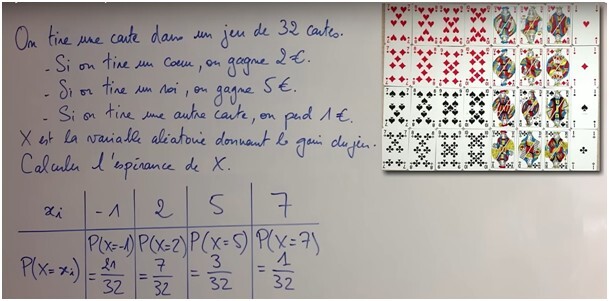 On tire une carte dans un jeu de 32 cartes.
- Si on tire un cœur, on gagne 2 €.
- Si on tire un roi, on gagne 5 €.
- Si on tire une autre carte, on perd 1 €.
X est la variable aléatoire donnant le gain du jeu.
Calculer l'espérance de X.
xi -1 2 5 7
P(X=xi) P(X=-1) = 21/32 P(X=2) = 7/32 P(X=5) = 3/32 P(X=7) = 1/32